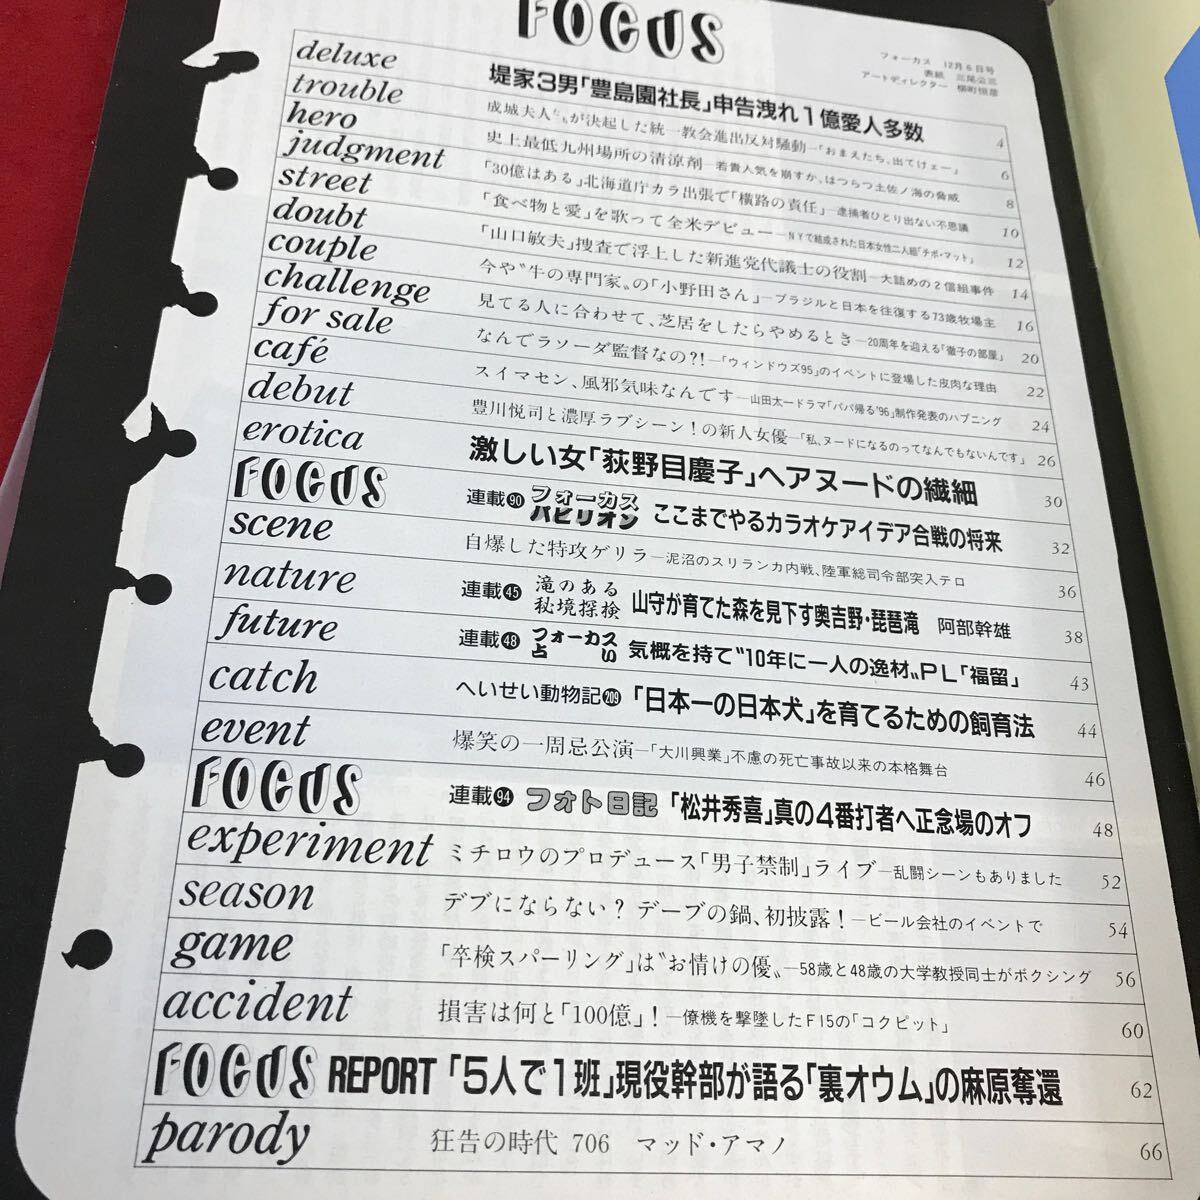 FOCUS
フォーカス 12月6日号
表紙 三尾公三
アートディレクター 柳町恒彦
deluxe 堤家3男「豊島園社長」申告洩れ1億愛人多数 4
trouble 成城夫人たちが決起した統一教会進出反対騒動—「おまえたち、出てけェー」 6
hero 史上最低九州場所の清涼剤—若貴人気を崩すか、はつらつ土佐ノ海の脅威 8
judgment 「30億はある」北海道庁カラ出張で「横路の責任」—逮捕者ひとり出ない不思議 10
street 「食べ物と愛」を歌って全米デビュー—NYで結成された日本女性二人組「チボ・マット」 12
doubt 「山口敏夫」捜査で浮上した新進党代議士の役割—大詰めの2信組事件 14
couple 今や〝牛の専門家〟の「小野田さん」—ブラジルと日本を往復する73歳牧場主 16
challenge 見てる人に合わせて、芝居をしたらやめるとき—20周年を迎える「徹子の部屋」 20
for sale なんでラソーダ監督なの?!—「ウィンドウズ95」のイベントに登場した皮肉な理由 22
café スイマセン、風邪気味なんです—山田太一ドラマ「パパ帰る'96」制作発表のハプニング 24
debut 豊川悦司と濃厚ラブシーン!の新人女優—「私、ヌードになるのってなんでもないんです」 26
erotica 激しい女「荻野目慶子」ヘアヌードの繊細 30
FOCUS 連載90 フォーカスパビリオン ここまでやるカラオケアイデア合戦の将来 32
scene 自爆した特攻ゲリラ—泥沼のスリランカ内戦、陸軍総司令部突入テロ 36
nature 連載45 滝のある秘境探検 山守が育てた森を見下す奥吉野・琵琶滝 阿部幹雄 38
future 連載48 フォーカス占い 気概を持て〝10年に一人の逸材〟PL「福留」 43
catch へいせい動物記209 「日本一の日本犬」を育てるための飼育法 44
event 爆笑の一周忌公演—「大川興業」不慮の死亡事故以来の本格舞台 46
FOCUS 連載94 フォト日記 「松井秀喜」真の4番打者へ正念場のオフ 48
experiment ミチロウのプロデュース「男子禁制」ライブ—乱闘シーンもありました 52
season デブにならない? デーブの鍋、初披露!—ビール会社のイベントで 54
game 「卒検スパーリング」は〝お情けの優〟—58歳と48歳の大学教授同士がボクシング 56
accident 損害は何と「100億」!—僚機を撃墜したF15の「コクピット」 60
FOCUS REPORT 「5人で1班」現役幹部が語る「裏オウム」の麻原奪還 62
parody 狂告の時代 706 マッド・アマノ 66